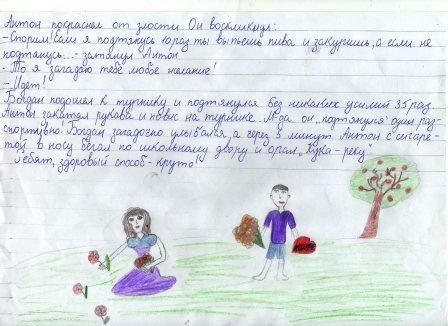 Антон покраснел от злости. Он воскликнул:
-Спорим! Если я подтянусь 10 раз, ты выпьешь пива и закуришь, а если не
подтянусь...- затянул Антон.
-То я загадаю тебе любое желание!
-Идет!
Богдан подошел к турнику и подтянулся без никаких усилий 35 раз.
Антон закатал рукава и повис на турнике. М-да он „подтянулся" один раз-
спортивно! Богдан загадочно улыбался, а через 5 минут Антон с сигаре-
той в носу бегал по школьному двору и орал „Кука-реку"
Ребят, здоровый способ - круто!